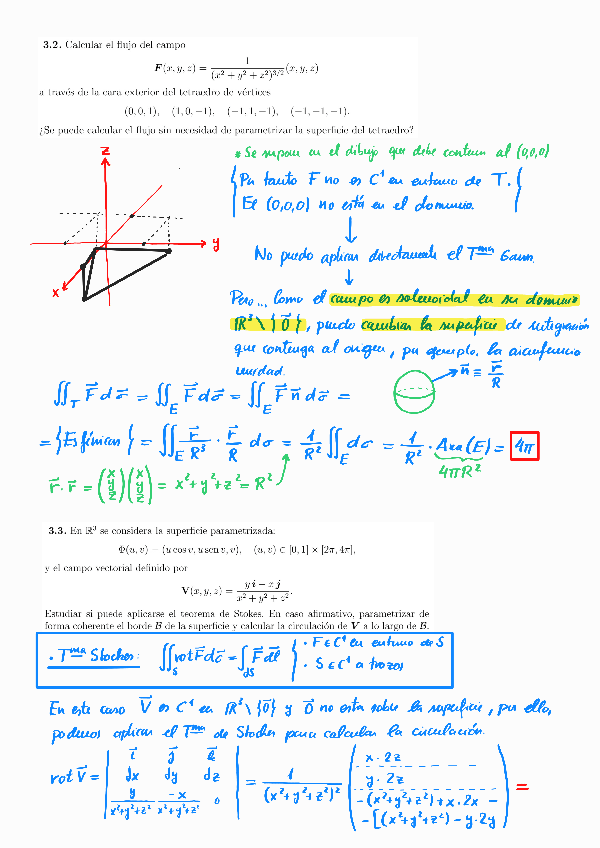 3.2. Calcular el flujo del campo
F(x, y, z) = 1 / (x² + y² + z²)^{3/2} (x, y, z)
a través de la cara exterior del tetraedro de vértices
(0, 0, 1), (1, 0, −1), (−1, 1, −1), (−1, −1, −1).
¿Se puede calcular el flujo sin necesidad de parametrizar la superficie del tetraedro?
* Se supone en el dibujo que debe contener al (0,0,0)
Por tanto F no es C¹ en entorno de T.
El (0,0,0) no está en el dominio.
z
y
x
No puedo aplicar directamente el Tᵐᵃ Gauss.
Pero... Como el campo es solenoidal en su dominio
ℝ³ \ {0⃗}, puedo cambiar la superficie de integración
que contenga al origen, por ejemplo, la circunferencia
unidad.
n⃗ ≡ r⃗/R
∬_T F⃗ dσ⃗ = ∬_E F⃗ dσ⃗ = ∬_E F⃗ n⃗ dσ =
= {Esféricas} = ∬_E r⃗/R³ · r⃗/R dσ = 1/R² ∬_E dσ = 1/R² · Area(E) = 4π
4πR²
r⃗ · r⃗ = (x y z)(x y z) = x² + y² + z² = R²
3.3. En ℝ³ se considera la superficie parametrizada:
Φ(u, v) = (u cos v, u sen v, v), (u, v) ∈ [0, 1] × [2π, 4π],
y el campo vectorial definido por
V(x, y, z) = (y i − x j) / (x² + y² + z²).
Estudiar si puede aplicarse el teorema de Stokes. En caso afirmativo, parametrizar de
forma coherente el borde B de la superficie y calcular la circulación de V a lo largo de B.
• Tᵐᵃ Stockes: ∬_S rot F⃗ dσ⃗ = ∫_{dS} F⃗ dl⃗
• F ∈ C¹ en entorno de S
• S ∈ C¹ a trozos
En este caso V⃗ es C¹ en ℝ³ \ {0⃗} y 0⃗ no esta sobre la superficie, por ello,
podemos aplicar el Tᵐᵃ de Stockes para calcular la circulación.
rot V⃗ = | i⃗ j⃗ k⃗ | dx dy dz | y/(x²+y²+z²) −x/(x²+y²+z²) 0 | = 1/(x²+y²+z²)² ( x·2z
y·2z
−(x²+y²+z²)+x·2x −
−[(x²+y²+z²) − y·2y ) =